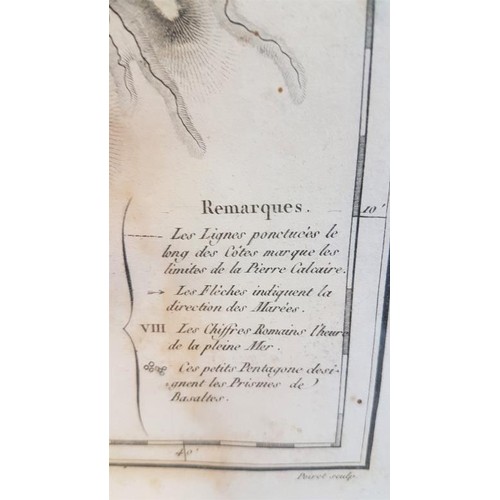 Remarques.
Les Lignes ponctuées le
long des Côtes marque les
limites de la Pierre Calcaire.
Les Flèches indiquent la
direction des Marées.
VIII Les Chiffres Romains l'heure
de la pleine Mer.
Ces petits Pentagone desi-
gnent les Prismes de
Basaltes.
10'
40'
sculp.